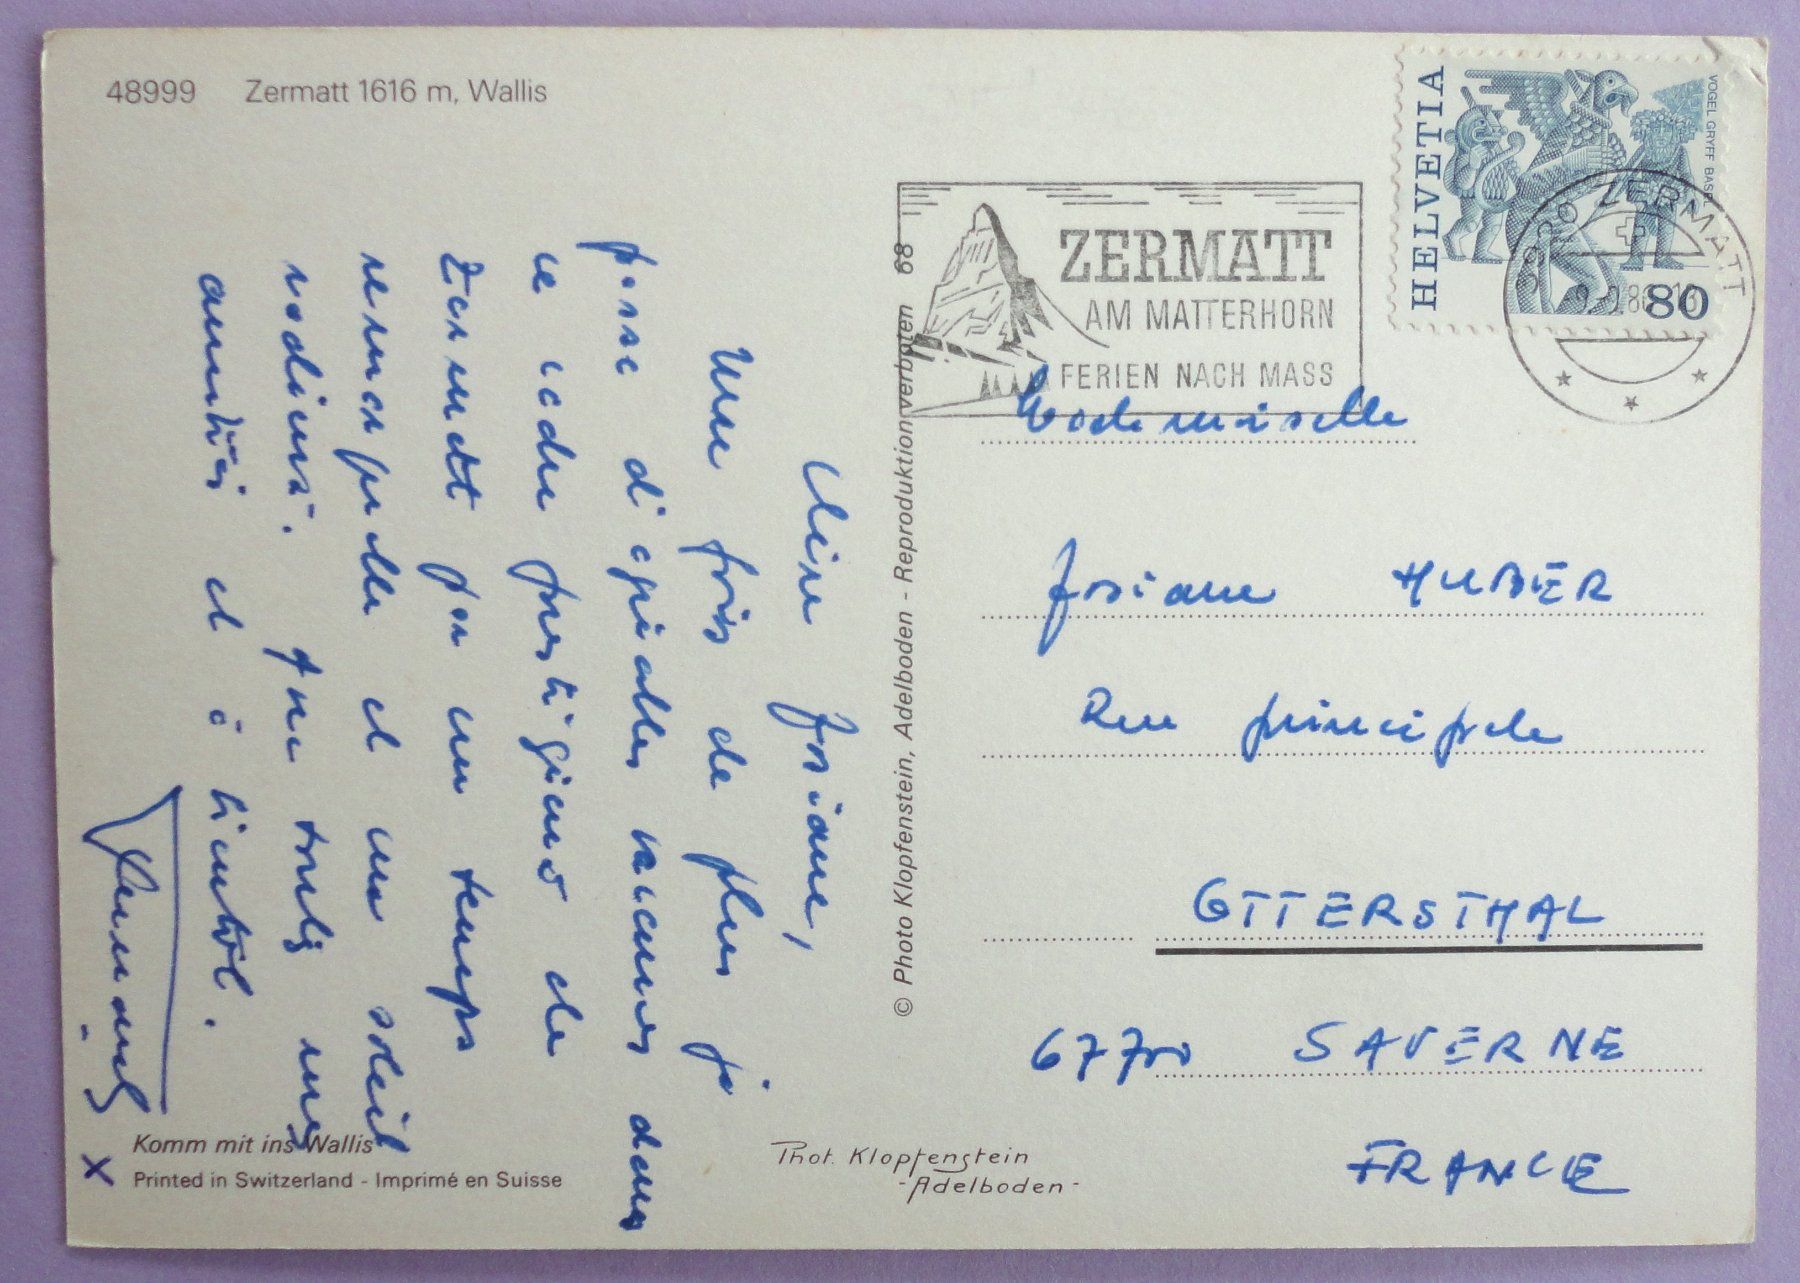 48999 Zermatt 1616 m, Wallis
Chère Josiane,
Une fois de plus je
passe d'agréables vacances dans
ce cadre prestigieux de
Zermatt par un temps
remarquable et un soleil
radieux. mes
amitiés et à bientôt.
x
Komm mit ins Wallis
Printed in Switzerland - Imprimé en Suisse
© Photo Klopfenstein, Adelboden - Reproduktion verboten 68
Phot. Klopfenstein
- Adelboden -
ZERMATT
AM MATTERHORN
FERIEN NACH MASS
HELVETIA
VOGEL GRYFF BASEL
80
3920 ZERMATT
Mademoiselle
Josiane HUBER
Rue principale
OTTERSTHAL
67700 SAVERNE
FRANCE